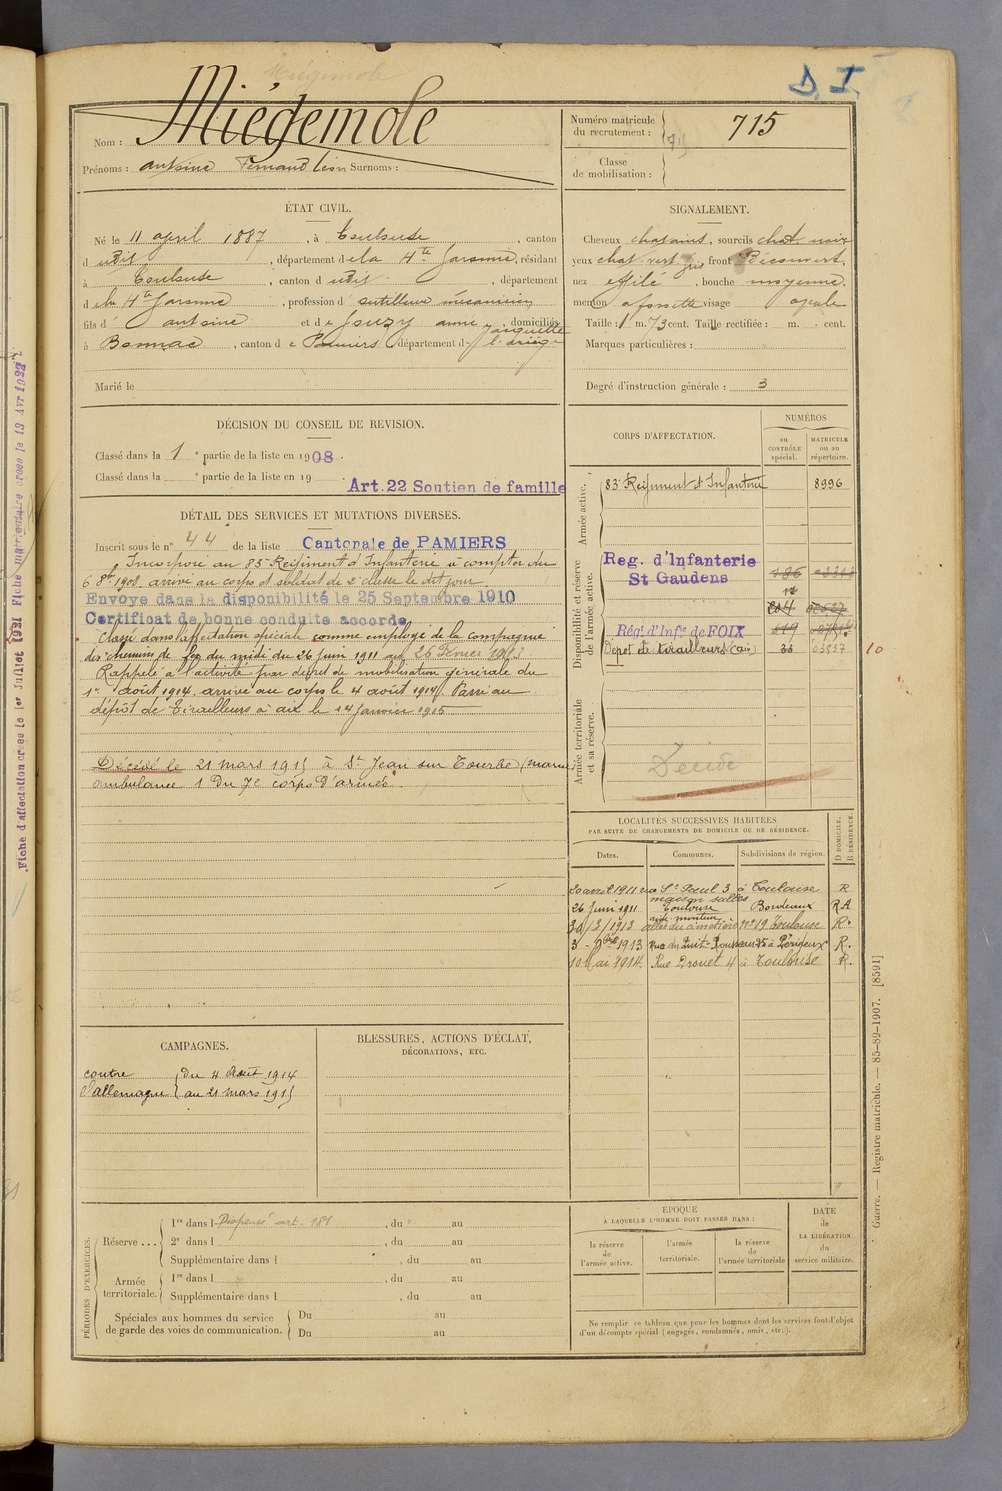 Miégemole
D. I.
Nom : Miégemole
Prénoms : antoine Fernand Léon Surnoms :
Numéro matricule du recrutement : 715
Classe de mobilisation :
ÉTAT CIVIL.
Né le 11 april 1887, à Toulouse, canton
d udit, département d e la Hte Garonne, résidant
à Toulouse, canton d udit, département
d e la Hte Garonne, profession d' outilleur mécanicien
fils d' antoine et d e Jouzy anne Janquette, domiciliés
à Bonnac, canton d e Pamiers, département d e l'ariège
Marié le
SIGNALEMENT.
Cheveux chatains, sourcils chat noir
yeux chat. vert gris front Découvert,
nez effilé, bouche moyenne,
menton a fossette visage ovale
Taille : 1 m. 73 cent. Taille rectifiée : m. cent.
Marques particulières :
Degré d'instruction générale : 3
DÉCISION DU CONSEIL DE REVISION.
Classé dans la 1e partie de la liste en 1908.
Classé dans la e partie de la liste en 19
Art. 22 Soutien de famille
DÉTAIL DES SERVICES ET MUTATIONS DIVERSES.
Inscrit sous le n° 44 de la liste Cantonale de PAMIERS
Incorporé au 83e Régiment d'Infanterie à compter du
6 8bre 1908. arrivé au corps et soldat de 2e classe le dit jour
Envoyé dans la disponibilité le 25 Septembre 1910
Certificat de bonne conduite accordé
Classé dans l'affectation spéciale comme employé de la compagnie
des chemins de fer du midi du 26 juin 1911 au 26 Février 1913
Rappelé à l'activité par décret de mobilisation générale du
1er août 1914, arrivé au corps le 4 août 1914. Passé au
dépôt de Tirailleurs à aix le 14 Janvier 1915
Décédé le 21 mars 1915 à St Jean sur Tourbe (marne)
ambulance 1 du 7e corps d'armée.
CORPS D'AFFECTATION.
NUMÉROS
au CONTRÔLE spécial.
MATRICULE ou au répertoire.
Armée active.
83e Régiment d'Infanterie 8996
Disponibilité et réserve de l'armée active.
Reg. d'Infanterie
St Gaudens
Régt d'Infie de FOIX
Dépot de tirailleurs (aix) 33 03837
10
Armée territoriale et sa réserve.
Décédé
LOCALITÉS SUCCESSIVES HABITÉES
PAR SUITE DE CHANGEMENTS DE DOMICILE OU DE RÉSIDENCE.
D DOMICILE. R RÉSIDENCE.
Dates. Communes. Subdivisions de région.
20 avril 1911 rue St Paul 3 à Toulouse R
maison salles
26 Juin 1911 Toulouse Bordeaux R A
3/2/1913 allée du cimetière n° 19 Toulouse R.
3 - 9bre 1913 Rue du Puit Rousseau 25 à Périgueux R.
10 Mai 1914. Rue Drouet 4 à Toulouse R.
CAMPAGNES.
contre l'allemagne du 4 Août 1914
au 21 mars 1915
BLESSURES, ACTIONS D'ÉCLAT,
DÉCORATIONS, ETC.
PÉRIODES D'EXERCICES.
Réserve . . .
1re dans l Dispensé art. 181, du au
2e dans l , du au
Supplémentaire dans l , du au
Armée territoriale.
1re dans l , du au
Supplémentaire dans l , du au
Spéciales aux hommes du service de garde des voies de communication.
Du au
Du au
ÉPOQUE
À LAQUELLE L'HOMME DOIT PASSER DANS :
la réserve de l'armée active.
l'armée territoriale.
la réserve de l'armée territoriale
DATE de LA LIBÉRATION du service militaire.
Ne remplir ce tableau que pour les hommes dont les services font l'objet
d'un décompte spécial (engagés, condamnés, omis, etc.).
Guerre. — Registre matricule. — 85-89-1907. [8591]
Fiche d'affectation créée le 1er Juillet 1921 Fiche matriculaire créée le 19 Avr 1922